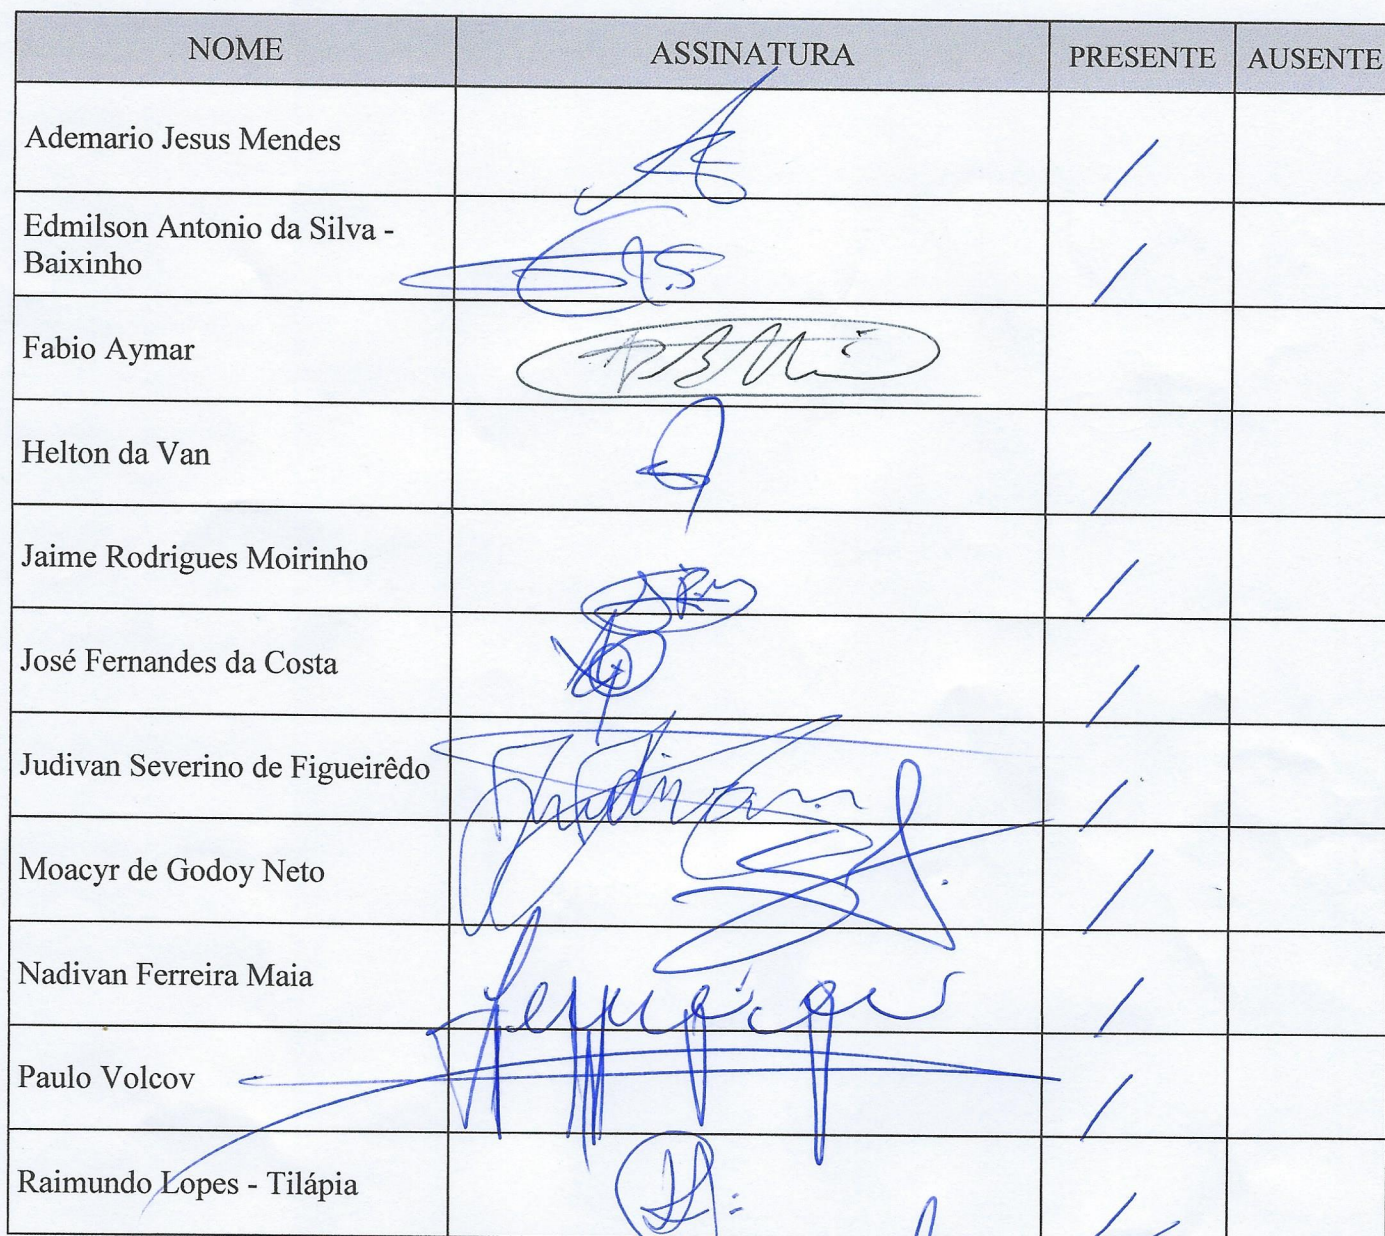 NOME ASSINATURA PRESENTE AUSENTE
Ademario Jesus Mendes /
Edmilson Antonio da Silva -
Baixinho /
Fabio Aymar
Helton da Van /
Jaime Rodrigues Moirinho JRM /
José Fernandes da Costa /
Judivan Severino de Figueirêdo Judivan /
Moacyr de Godoy Neto /
Nadivan Ferreira Maia /
Paulo Volcov /
Raimundo Lopes - Tilápia /